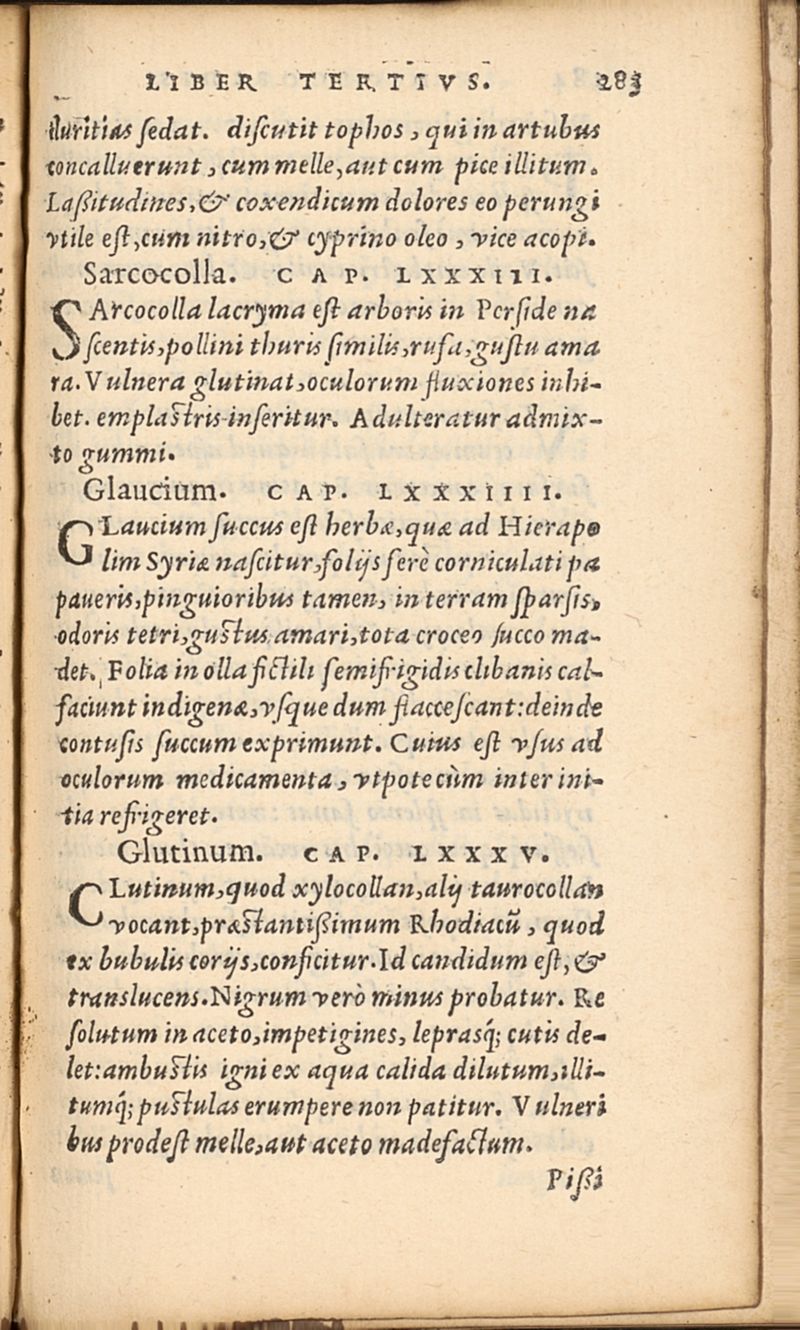 LIBER TERTIVS. 283
sedat. discutit tophos, qui in artubus
concalluerunt, cum melle, aut cum pice illitum.
Laßitudines, & coxendicum dolores eo perungi
vtile est, cum nitro, & cyprino oleo, vice acopi.
Sarcocolla. CAP. LXXXIII.
SArcocolla lacryma est arboris in Perside na
scentis, pollini thuris similis, rufa, gustu ama
ra. Vulnera glutinat, oculorum fluxiones inhi-
bet. emplastris inseritur. Adulteratur admix-
to gummi.
Glaucium. CAP. LXXXIIII.
GLaucium succus est herbæ, quæ ad Hierapo
lim Syriæ nascitur, folijs ferè corniculati pa
paueris, pinguioribus tamen, in terram sparsis,
odoris tetri, gustus amari, tota croceo succo ma-
det. Folia in olla fictili semifrigidis clibanis cal-
faciunt indigenæ, vsque dum flaccescant: deinde
contusis succum exprimunt. Cuius est vsus ad
oculorum medicamenta, vtpote cùm inter ini-
tia refrigeret.
Glutinum. CAP. LXXXV.
GLutinum, quod xylocollan, alij taurocollan
vocant, præstantißimum Rhodiacũ, quod
ex bubulis corijs, conficitur. Id candidum est, &
translucens. Nigrum verò minus probatur. Re
solutum in aceto, impetigines, leprasq́; cutis de-
let: ambustis igni ex aqua calida dilutum, illi-
tumq́; pustulas erumpere non patitur. Vulneri
bus prodest melle, aut aceto madefactum.
Pißi